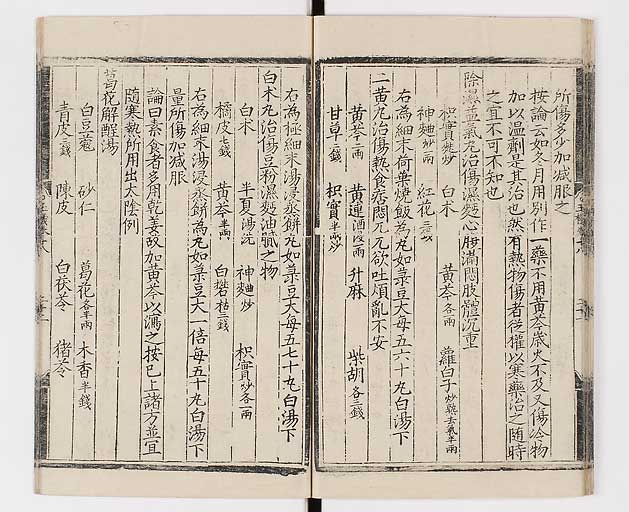 所傷多少加減服之
按論云如冬月用別作一藥不用黃芩歲火不及又傷冷物
加以温劑是其治也然有熱物傷者從權以寒藥治之隨時
之宜不可不知也
除濕益氣丸治傷濕麵心腹滿悶肢體沉重
枳實麩炒 白朮 黃芩各一兩 蘿白子炒熟去氣半兩
神麯炒一兩 紅花三錢
右為細末荷葉燒飯為丸如菉豆大每五六十丸白湯下
二黃丸治傷熱食痞悶兀兀欲吐煩亂不安
黃芩二兩 黃連酒浸一兩 升麻 柴胡各三錢
甘草二錢 枳實半兩炒
右為極細末湯浸蒸餅丸如菉豆大每五七十丸白湯下
白朮丸治傷豆粉濕麵油膩之物
白朮 半夏湯洗 神麯炒 枳實炒各一兩
橘皮七錢 黃芩半兩 白礬枯三錢
右為細末湯浸蒸餅為丸如菉豆大一倍每五十丸白湯下
量所傷加減服
論曰素食者多用乾姜故加黃芩以瀉之按已上諸方並宜
隨寒熱所用出太陰例
葛花解酲湯
白豆蔻 砂仁 葛花各半兩 木香半錢
青皮三錢 陳皮 白茯苓 猪苓